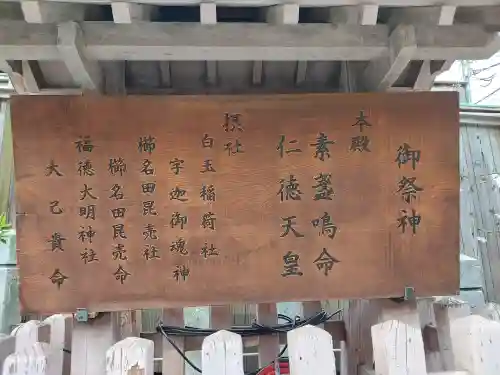 御祭神
本殿
素盞鳴命
仁徳天皇
摂社
白玉稲荷社
宇迦御魂神
櫛名田毘売社
櫛名田毘売命
福徳大明神社
大己貴命